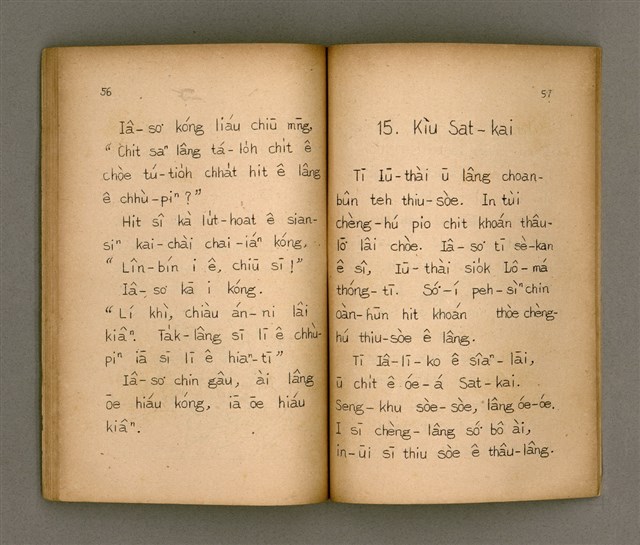 56
Iâ-so͘ kóng liáu chiū mn̄g,
“Chit saⁿ lâng tá-lo̍h chi̍t ê
chòe tú-tio̍h chha̍t hit ê lâng
ê chhù-piⁿ?”
Hit sî kà lu̍t-hoat ê sian-
siⁿ kai-chài chai-iáⁿ kóng,
“Lîn-bín i ê, chiū sī!”
Iâ-so͘ kā i kóng.
“Lí khì, chiàu án-ni lâi
kiâⁿ. Ta̍k-lâng sī lí ê chhù-
piⁿ iā sī lí ê hiaⁿ-tī”
Iâ-so͘ chin gâu, ài lâng
ōe hiáu kóng, iā ōe hiáu
kiâⁿ.
57
15. Kìu Sat-kai
Tī Iū-thài ū lâng choan-
bûn teh thiu-sòe. In tùi
chèng-hú pio chit khoán thâu-
lō͘ lâi chòe. Iâ-so͘ tī sè-kan
ê sî, Iū-thài sio̍k Lô-má
thóng-tī. Só͘-í peh-sìⁿ chin
oàn-hūn hit khoán thòe chèng-
hú thiu-sòe ê lâng.
Tī Iâ-lī-ko ê siâⁿ-lāi,
ū chi̍t ê óe-á Sat-kai.
Seng-khu sòe-sòe, lâng óe-óe.
I sī chèng-lâng só͘ bô ài,
in-ūi sī thiu sòe ê thâu-lâng.